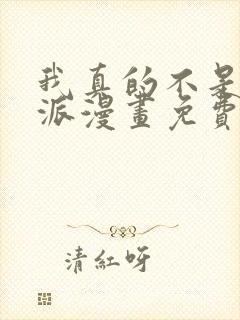 我真的不是
派漫畫免費
清紅呀